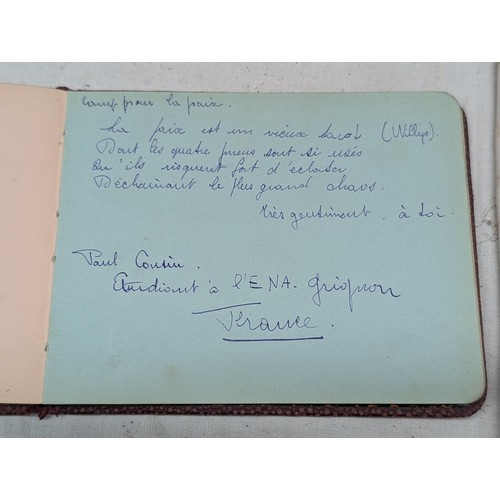 Camp pour la paix.
La paix est un vieux tacot (Willys).
Dont les quatre pneus sont si usés
Qu'ils risquent fort d'éclater
Déchaînant le plus grand chaos.
très gentiment. à toi.
Paul Cousin.
Etudiant à l'ENA. Grignon
France.